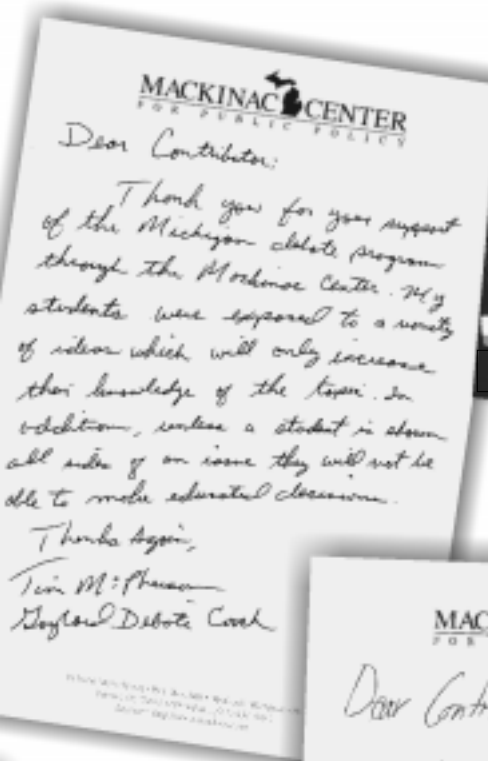 MACKINAC CENTER
FOR PUBLIC POLICY
Dear Contributor:
Thank you for your support
of the Michigan debate program
through the Mackinac Center. My
students were exposed to a variety
of ideas which will only increase
their knowledge of the topic. In
addition, unless a student is shown
all sides of an issue they will not be
able to make educated decisions.
Thanks Again,
Tim McPherson
Gaylord Debate Coach
MAC
FOR
Dear Contr